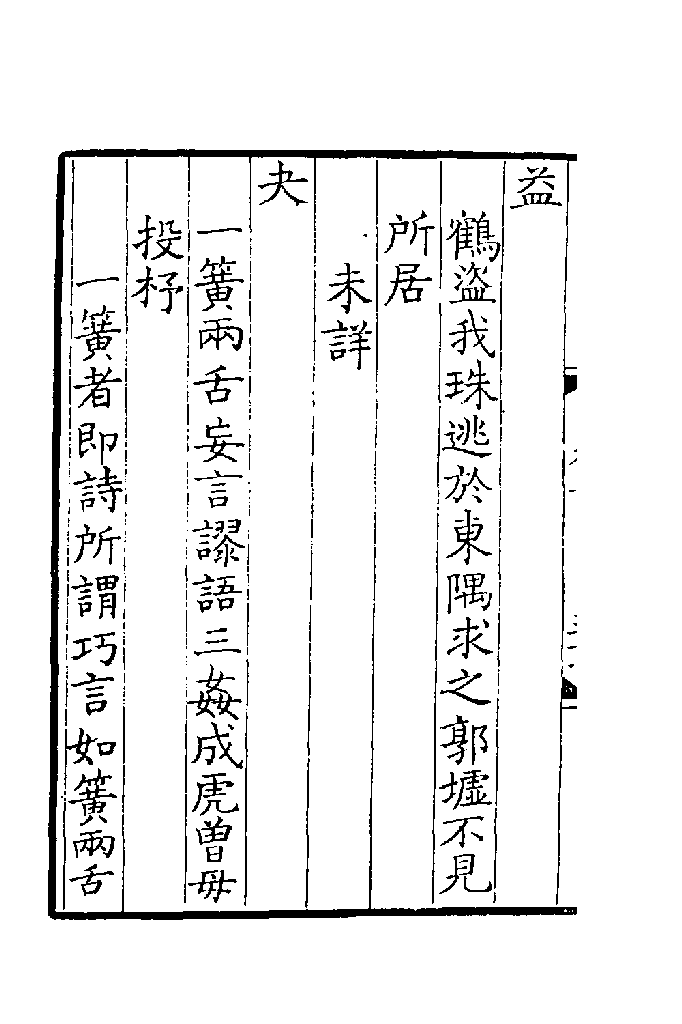 益
鶴盜我珠逃於東隅求之郭墟不見
所居
未詳
夬
一簧兩舌妄言謬語三姦成虎曽毋
投杼
一簧者即詩所謂巧言如簧兩舌